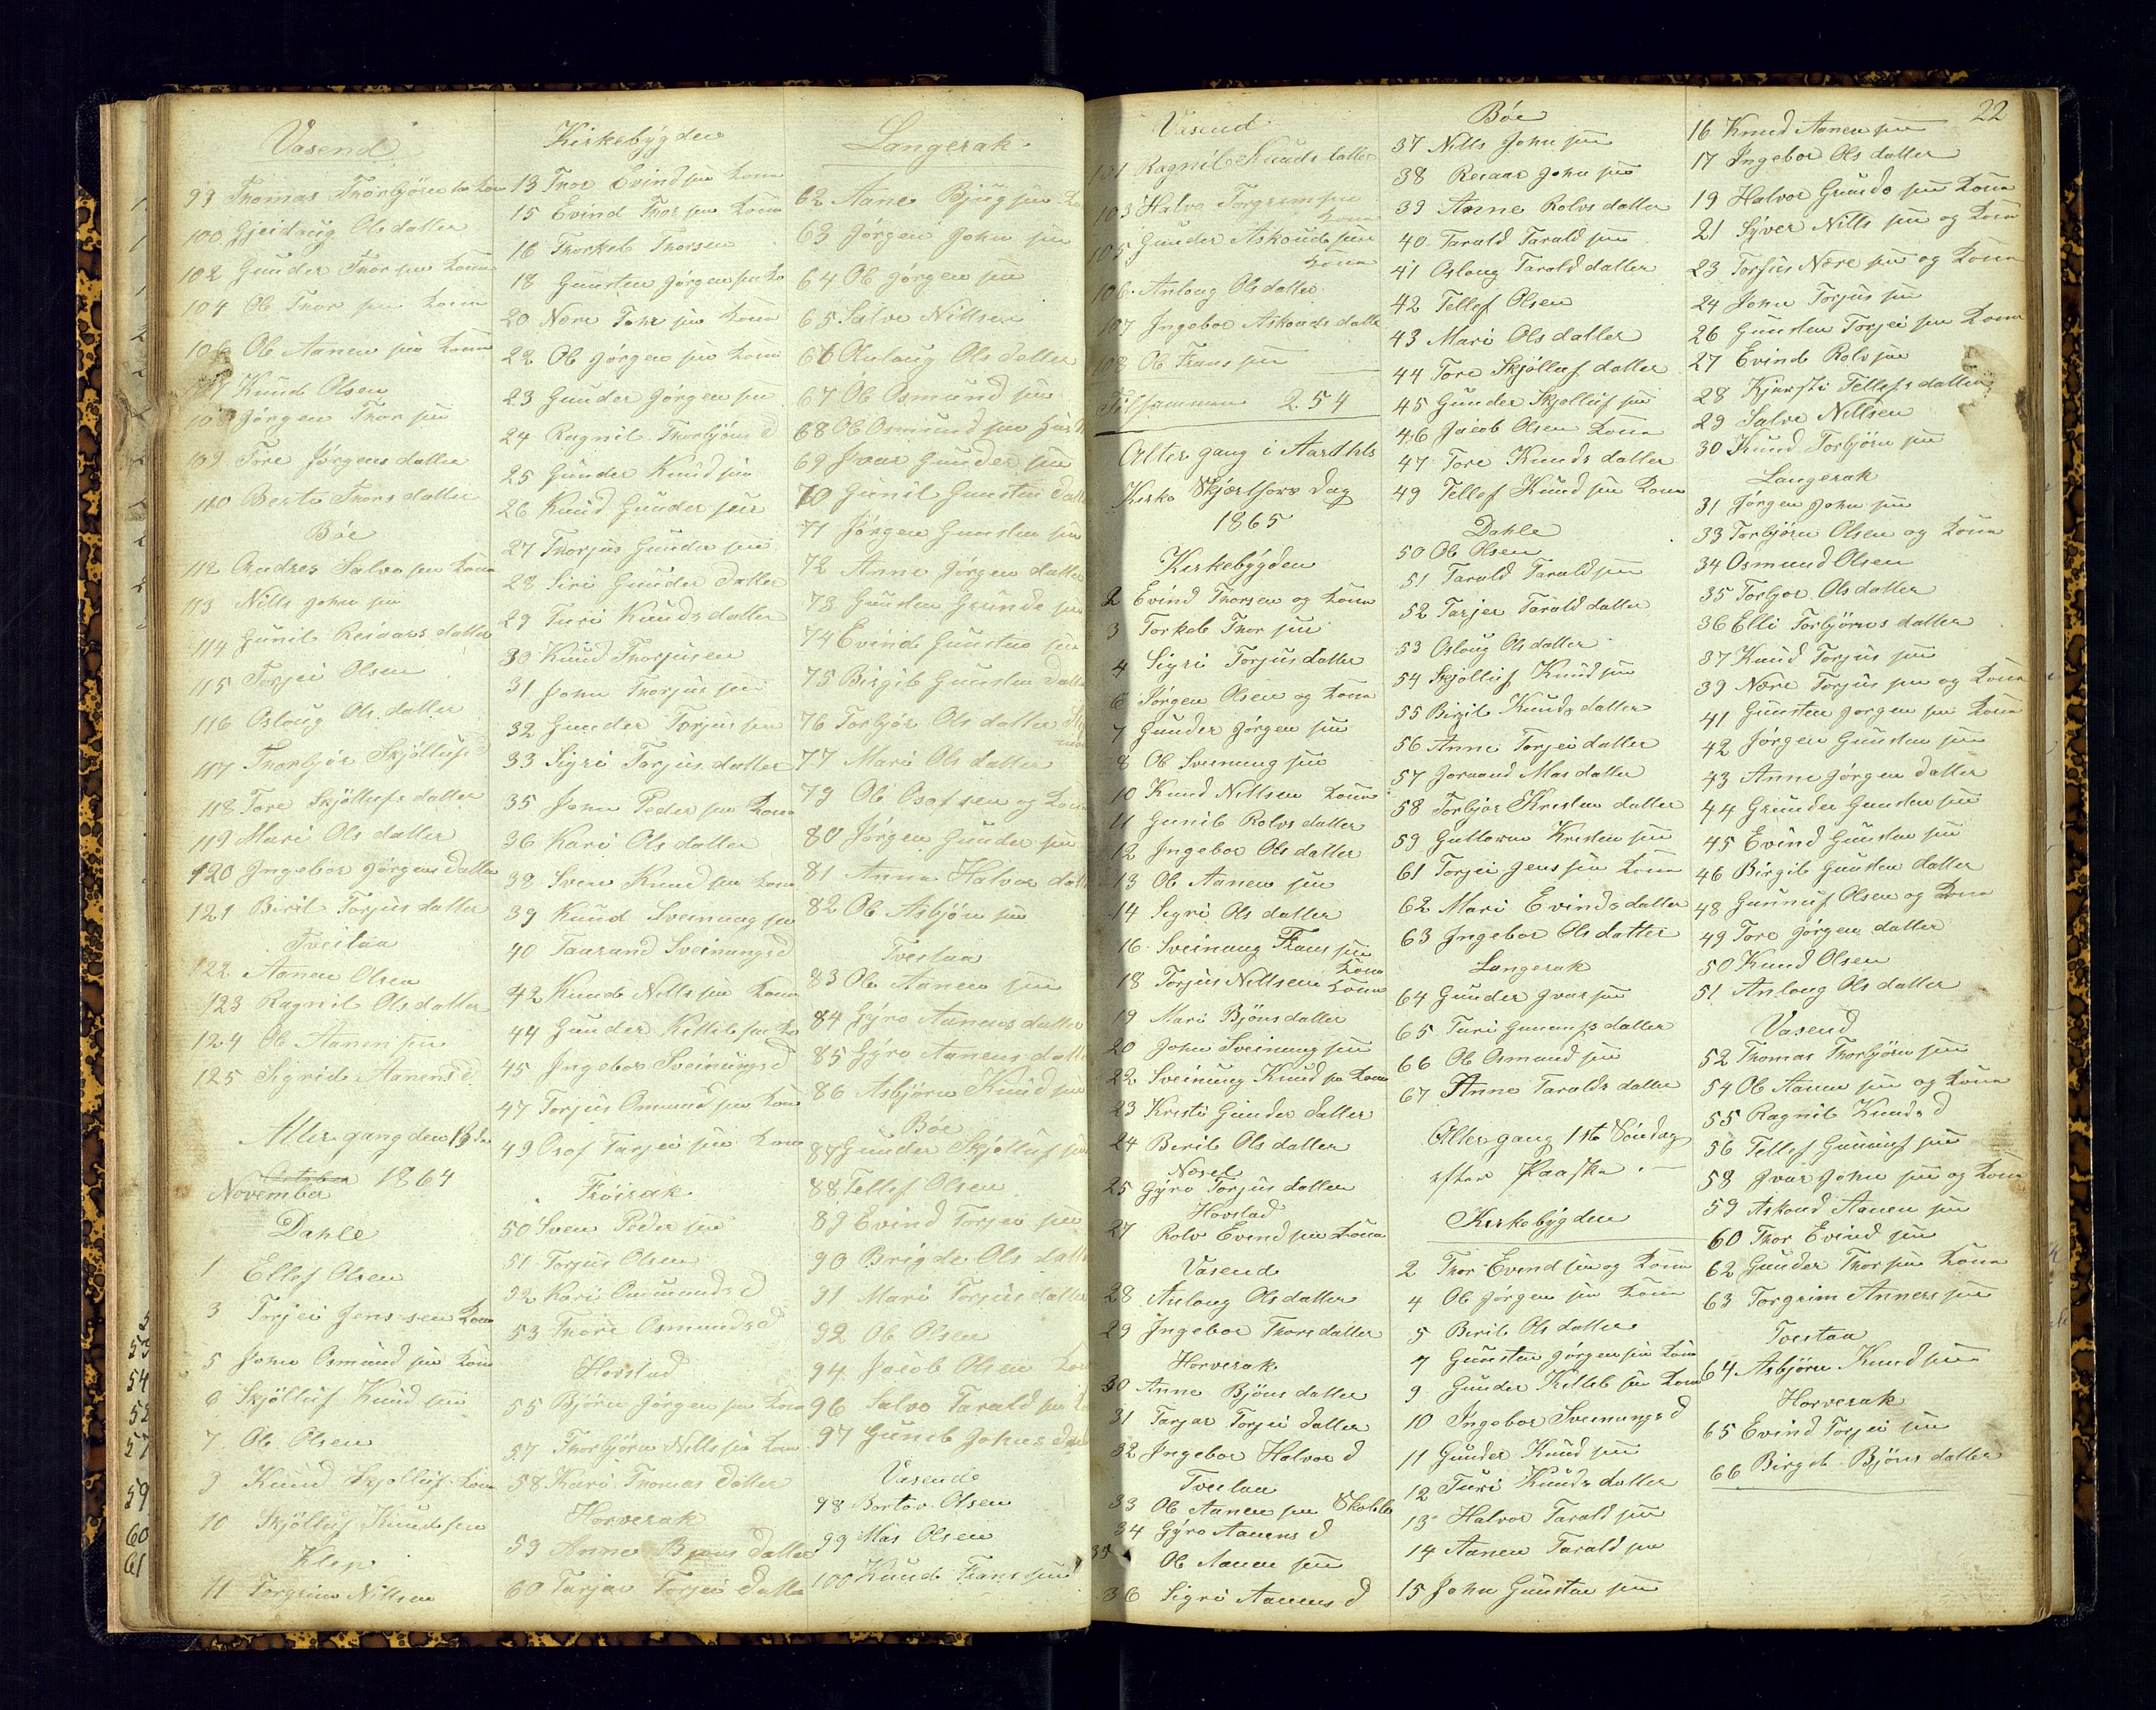 Vasend
99 Thomas Thorbjörn sen Kona
100 Gjeidaug Olsdatter
102 Gunder Thor sen Kona
104 Ob Thor sen Kona
106 Ob Aanen sen Kona
107 Knud Olsen
108 Jörgen Thor sen
109 Tore Jörgensdatter
110 Berte Thorsdatter
Böe
112 Andres Salve sen Kona
113 Nills John sen
114 Gunil Reidarsdatter
115 Torjei Olsen
116 Oslaug Olsdatter
117 Thorbjör Skjöllufs d
118 Tore Skjöllefsdatter
119 Mari Olsdatter
120 Ingebor Jörgensdatter
121 Birit Torjusdatter
Tveitaa
122 Aanen Olsen
123 Ragnil Olsdatter
124 Ob Aanen sen
125 Sigrid Aanens d
Altergang den 13de
November 1864
Dahle
1 Ellef Olsen
3 Torjei Jens sen Kona
5 John Osmund sen Kona
6 Skjölluf Knud sen
7 Ob Olsen
9 Knud Skjölluf Kona
10 Skjölluf Knudsen
Klep
11 Torgrim Nillsen
Kirkebygden
13 Thor Evind sen Kona
15 Evind Thor sen Kona
16 Thorkel Thorsen
18 Gunsten Jörgen sen Ko
20 Nære Tohr sen Kona
22 Ob Jörgen sen Kona
23 Gunder Jörgen sen
24 Ragnil Thorbjöns d
25 Gunder Knud sen
26 Knud Gunder sen
27 Thorjus Gunder sen
28 Siri Gunder datter
29 Turi Knudsdatter
30 Knud Thorjusen
31 John Thorjus sen
32 Gunder Torjus sen
33 Sigri Torjus datter
35 John Peder sen Kona
36 Kari Olsdatter
38 Sven Knud sen Kona
39 Knud Sveinung sen
40 Taurand Sveinungs d
42 Knud Nills sen Kona
44 Gunder Killeb sen Ko
45 Ingebor Sveinungs d
47 Torjus Omund sen Kon
49 Osof Tarjei sen Kona
Fröirak
50 Sven Peder sen
51 Torjus Olsen
52 Kari Omunds d
53 Thore Osmunds d
Hovstad
55 Björn Jörgen sen Kona
57 Thorbjörn Nills sen Kon
58 Kari Thomas datter
Horverak
59 Anne Bjöns datter
60 Tarjar Torjei datter
Langerak
62 Aane Bjug sen Ko
63 Jørgen John sen
64 Ob Jörgen sen
65 Salve Nillsen
66 Anlaug Olsdatter
67 Ob Osmund sen
68 Ob Osmund sen
69 Ivar Gunder sen
70 Gunil Gunsten datt
71 Jörgen Gunsten sen
72 Anne Jörgen datter
73 Gunsten Grunde sen
74 Evind Gunsten sen
75 Birgit Gunsten datte
76 Torbjör Olsdatter
77 Mari Olsdatter
79 Ob Osofsen og Kona
80 Jörgen Gunder sen
81 Anna Halvor datt
82 Ob Asbjörn sen
Tveitaa
83 Ob Aanen sen
84 Gyro Aanens datter
85 Gyro Aanens datt
86 Asbjörn Knud sen
Böe
87 Gunder Skjölluf sen
88 Tellef Olsen
89 Evind Torjei sen
90 Brigde Olsdatt
91 Mari Torjus datter
92 Ob Olsen
94 Jacob Olsen Kon
96 Salve Tarald sen Ko
97 Gunil Johns d
Vasend
98 Bertov Olsen
99 Mas Olsen
100 Knud Frans sen
22
Vasend
101 Ragnil Knuds datter
103 Halvo Torgrim sen
Kona
105 Gunder Askoud sen
Kona
106 Anlaug Olsdatter
107 Ingebor Askouds datt
108 Ob Frans sen
Tilsammen 254
Altergang i Aardhls
Kirke Skjærthors dag
1865
Kirkebygden
2 Evind Thorsen og Kona
3 Torkeb Thor sen
4 Sigri Torjus datter
6 Jörgen Olsen og Kona
7 Gunder Jörgen sen
8 Ob Sveinung sen
10 Knud Nillsen Kona
11 Gunil Rolvs datter
12 Ingebor Olsdatter
13 Ob Aanen sen
14 Sigri Olsdatter
16 Sveinung Frans sen
Kona
18 Torjus Nillsen Kona
19 Mari Bjönsdatter
20 John Sveinung sen
22 Sveinung Knud sn Kona
23 Kristi Gunder datter
24 Berit Olsdatter
Næset
25 Gyro Torjus datter
Hovstad
27 Rolv Evend sen Kona
Vasend
28 Anlaug Olsdatter
29 Ingebor Thorsdatter
Horverak
30 Anne Bjöns datter
31 Tarjar Torjei datter
32 Ingebor Halvor d
Tveitaa
33 Ob Aanen sen
34 Gyro Aanens d
35 Ob Aanen sen
36 Sigri Aanens d
Böe
37 Nills John sen
38 Reiaar John sen
39 Anne Rolvs datter
40 Tarald Tarald sen
41 Oslaug Tarald datter
42 Tellef Olsen
43 Mari Olsdatter
44 Tore Skjöllefs datter
45 Gunder Skjölluf sen
46 Jacob Olsen Kona
47 Tore Knuds datter
49 Tellef Knud sen Kona
Dahle
50 Ob Olsen
51 Tarald Tarald sen
52 Tarjer Tarald datter
53 Oslaug Olsdatter
54 Skjölluf Knud sen
55 Birgit Knudsdatter
56 Anne Torjei datter
57 Joraand Mas datter
58 Torbjör Kristen datter
59 Gulloven Kristen sen
61 Torjei Jens sen Kona
62 Mari Evinds datter
63 Ingebor Olsdatter
Langerak
64 Gunder Ivar sen
65 Turi Gununfs datter
66 Ob Osmund sen
67 Anne Taralds datter
Altergang 1ste Söndag
efter Paaske
Kirkebygden
2 Thor Evend sen og Kona
4 Ob Jorgen sen Kona
5 Berit Olsdatter
7 Gunsten Jörgen sen Kona
9 Gunder Killeb sen Kona
10 Ingebor Sveinungs d
11 Gunder Knud sen
12 Turi Knudsdatter
13 Halvor Tarald sen
14 Aanen Tarald sen
15 John Gunsten sen
16 Knud Aanen sen
17 Ingebor Olsdatter
19 Halvor Grunde sen Kona
21 Syver Nills sen og Kona
23 Torjus Nære sen og Kona
24 John Torjus sen
26 Gunsten Torjei sen Kona
27 Evind Rolv sen
28 Kjersti Tellefs datter
29 Salve Nillsen
30 Knud Torbjörn sen
Langerak
31 Jørgen John sen
33 Torbjörn Olsen og Kona
34 Osmund Olsen
35 Torbjor Olsdatter
36 Elli Torbjörns datter
37 Knud Torjus sen
39 Nære Torjus sen og Kona
41 Gunsten Jorgen sen Kona
42 Jörgen Gunsten sen
43 Anne Jörgen datter
44 Grunder Gunsten sen
45 Evind Gunsten sen
46 Birgit Gunsten datter
48 Gunnuf Olsen og Kona
49 Tore Jörgens datter
50 Knud Olsen
51 Anlaug Olsdatter
Vasend
52 Thomas Thorbjörn sen
54 Ob Aanen sen og Kona
55 Ragnil Knuds d
56 Tellef Gunuf sen
58 Ivar John sen og Kona
59 Askoud Aanen sen
60 Thor Evind sen
62 Gunder Thor sen Kona
63 Torgrim Anners sen
Tveitaa
64 Asbjörn Knud sen
Horverak
65 Evind Torjei sen
66 Birgit Bjöns datter